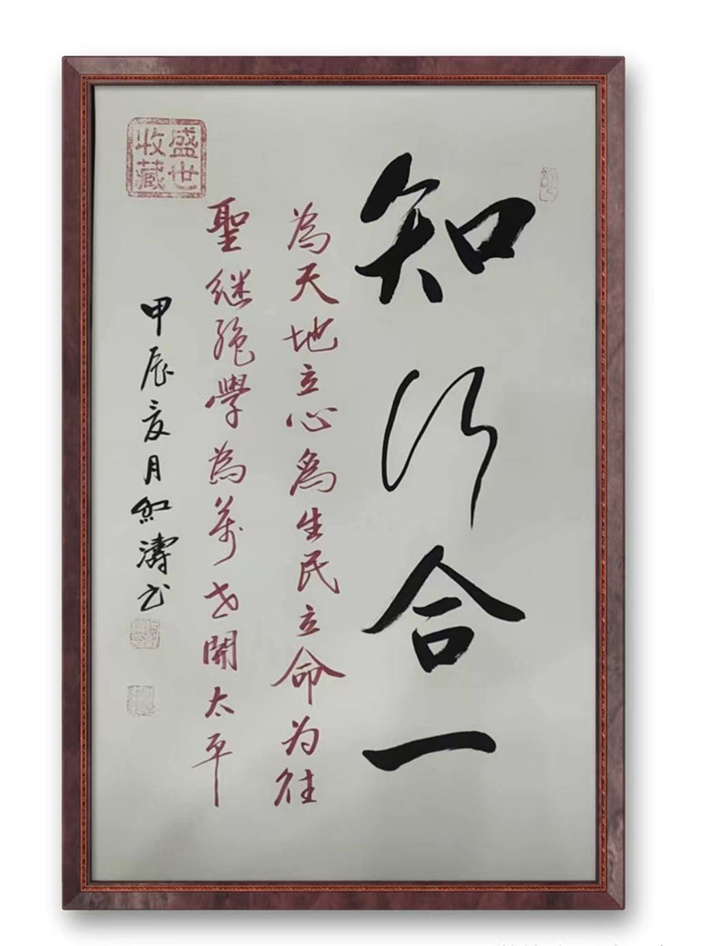 知行合一
為天地立心為生民立命为往
聖继绝學為萬世開太平
甲辰夏月红濤书
盛世收藏